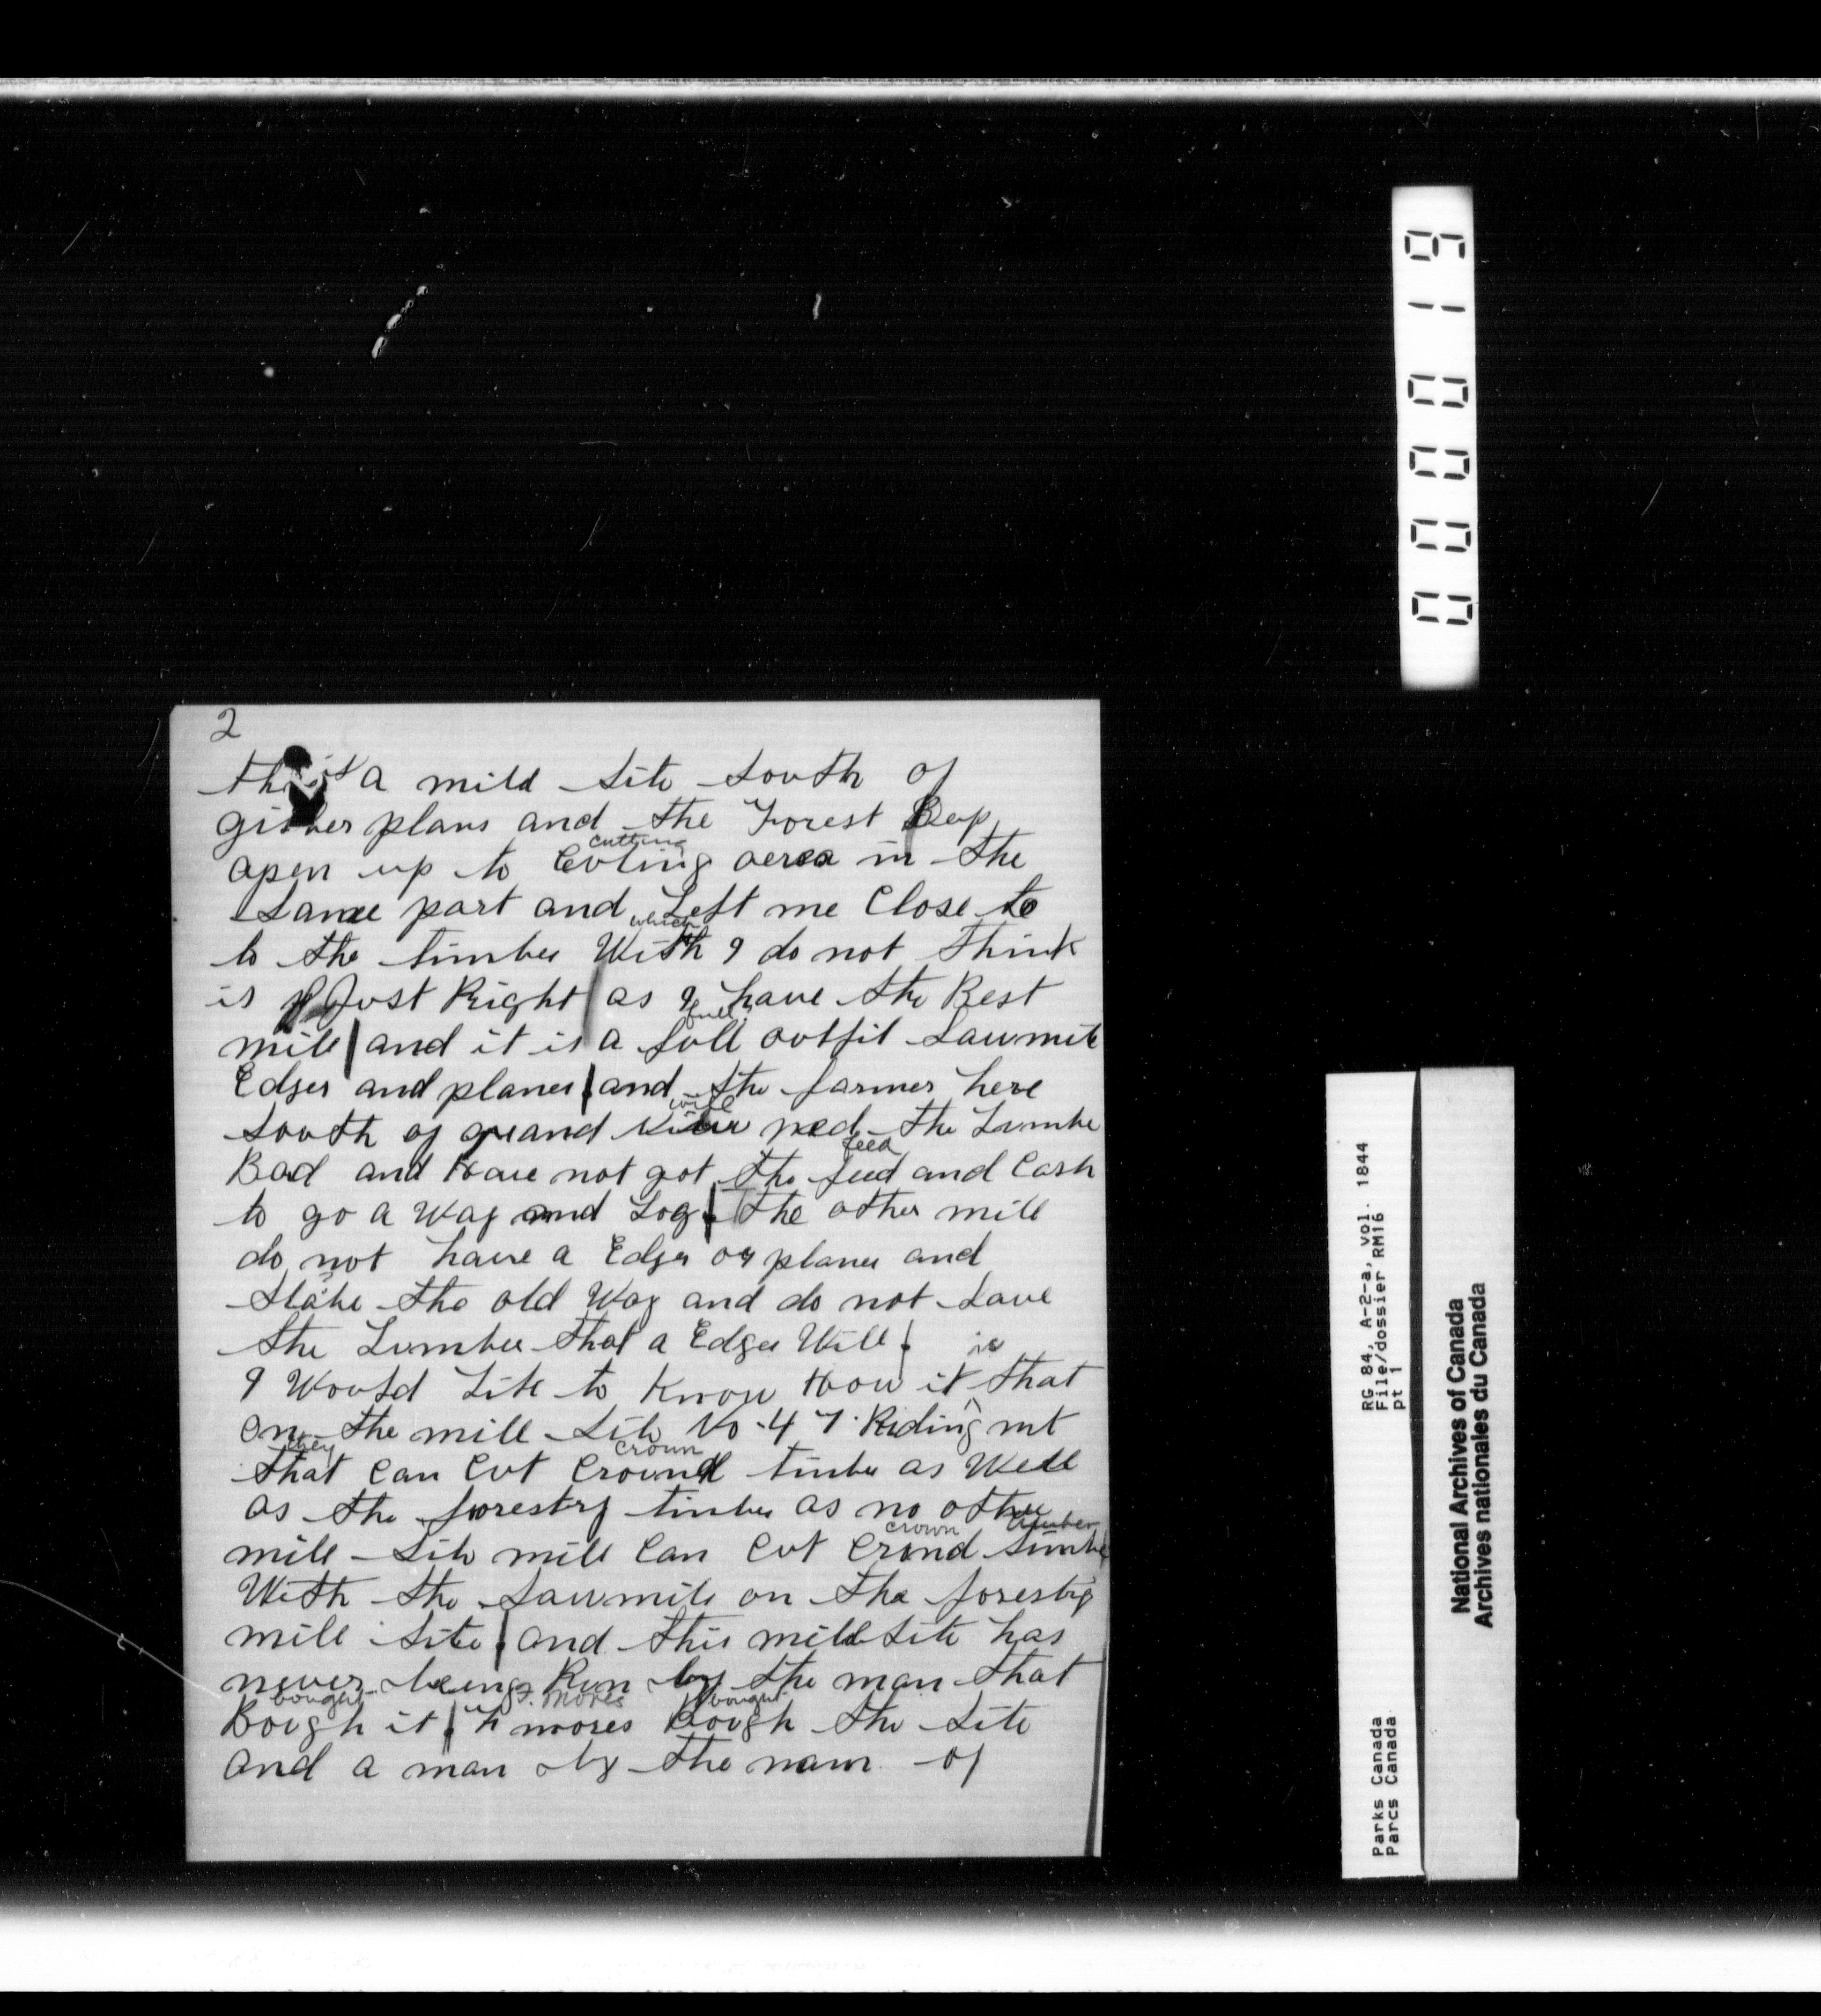 2
this is a mill site south of
gilber plans and the Forest Dep
cutting
open up to Coting aerea in the
same part and Left me Close to
which
to the timber With I do not think
is Just Right as I have the Best
full
mill and it is a foll outfit Sawmill
Edger and planer and the farmer here
will
south of grand need the Lumber
feed
Bad and Have not got the feed and Cash
to go a Way and Log. The other mill
do not have a Edger or planer and
the old Way and do not save
the Lumber that a Edger Will.
is
I Would Like to Know How it that
on the mill site No. 47 Riding mt
they crown
that Can Cut Cround timber as Well
as the forestry timber as no other
crown timber
mill site mill Can Cut Crond timber
With the sawmill on the forestry
mill site. and this mill site has
never being Run by the man that
bought J. Mores bought
Bough it. h mores Bough the site
and a man by the nam of
000019
RG 84, A-2-a, vol. 1844
File/dossier RM16
pt 1
Parks Canada
Parcs Canada
National Archives of Canada
Archives nationales du Canada